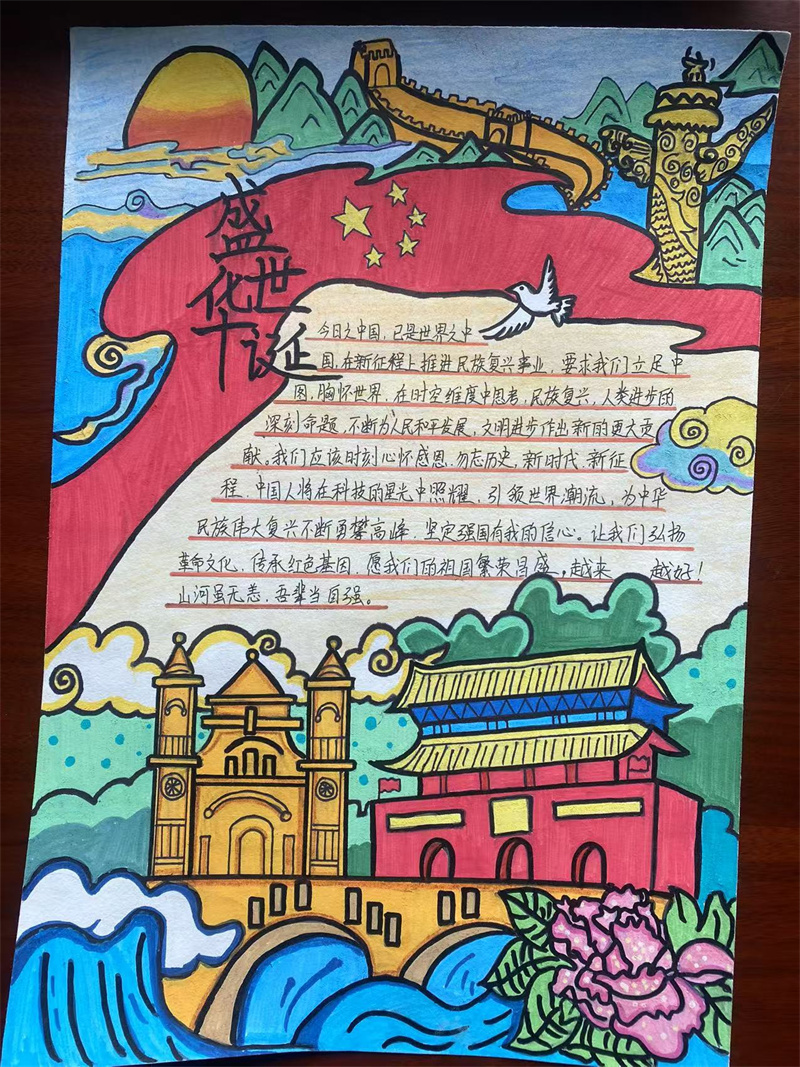 盛世
华诞
今日之中国，已是世界之中
国，在新征程上推进民族复兴事业，要求我们立足中
国，胸怀世界，在时空维度中思考，民族复兴，人类进步的
深刻命题，不断为人民和平发展，文明进步作出新的更大贡
献。我们应该时刻心怀感恩，勿忘历史，新时代，新征
程，中国人将在科技的星光中照耀，引领世界潮流，为中华
民族伟大复兴不断勇攀高峰，坚定强国有我的信心。让我们弘扬
革命文化，传承红色基因，愿我们的祖国繁荣昌盛，越来 越好！
山河虽无恙，吾辈当自强。